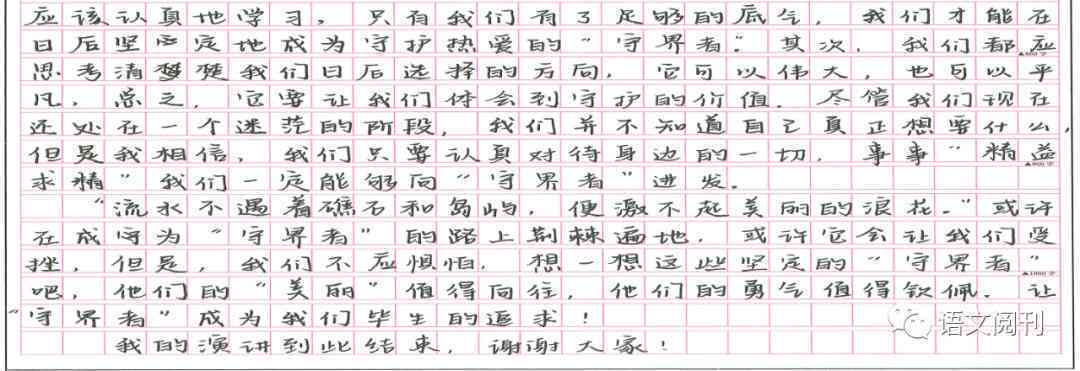 应该认真地学习，只有我们有了足够的底气，我们才能在
日后坚定地成为守护热爱的“守界者”。其次，我们都应
思考清楚我们日后选择的方向，它可以伟大，也可以平
凡，总之，它要让我们体会到守护的价值。尽管我们现在
还处在一个迷茫的阶段，我们并不知道自己真正想要什么，
但是我相信，我们只要认真对待身边的一切，事事“精益
求精”我们一定能够向“守界者”进发。
“流水不遇着礁石和岛屿，便激不起美丽的浪花。”或许
在成为“守界者”的路上荆棘遍地，或许它会让我们受
挫，但是，我们不应惧怕，想一想这些坚定的“守界者”
吧，他们的“美丽”值得向往，他们的勇气值得钦佩。让
“守界者”成为我们毕生的追求！
我的演讲到此结束，谢谢大家！
语文阅刊